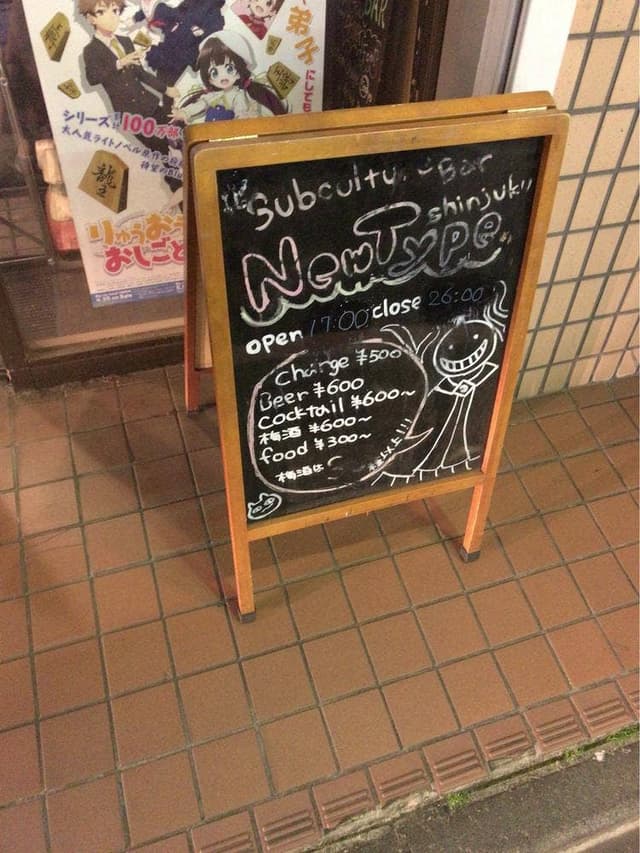 BAR
弟子
にしても
シリーズ
100万部
大人気ライトノベル
龍王
りゅうお
おしごと
Subcultu Bar
shinjuku
NewType
open 17:00 close 26:00
Charge ¥500
Beer ¥600
Cocktail ¥600~
梅酒 ¥600~
food ¥300~
梅酒は